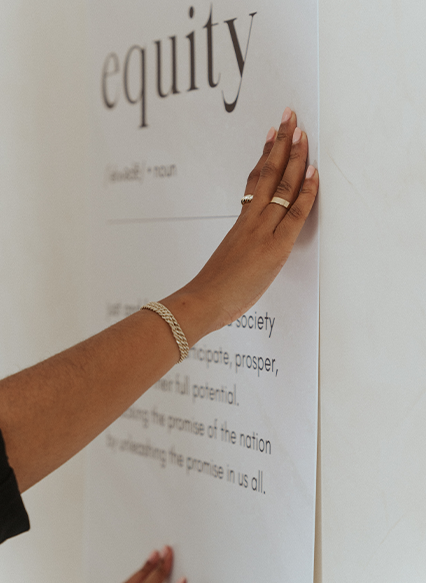 equity
noun
just society
participate, prosper,
their full potential.
the promise of the nation
by unleashing the promise in us all.